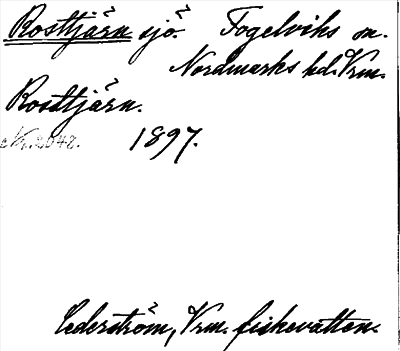 Rosttjärn sjö. Fogelviks sn.
Nordmarks hd. Vrm.
Rosttjärn.
1897.
Cederström, Vrm. fiskevatten.